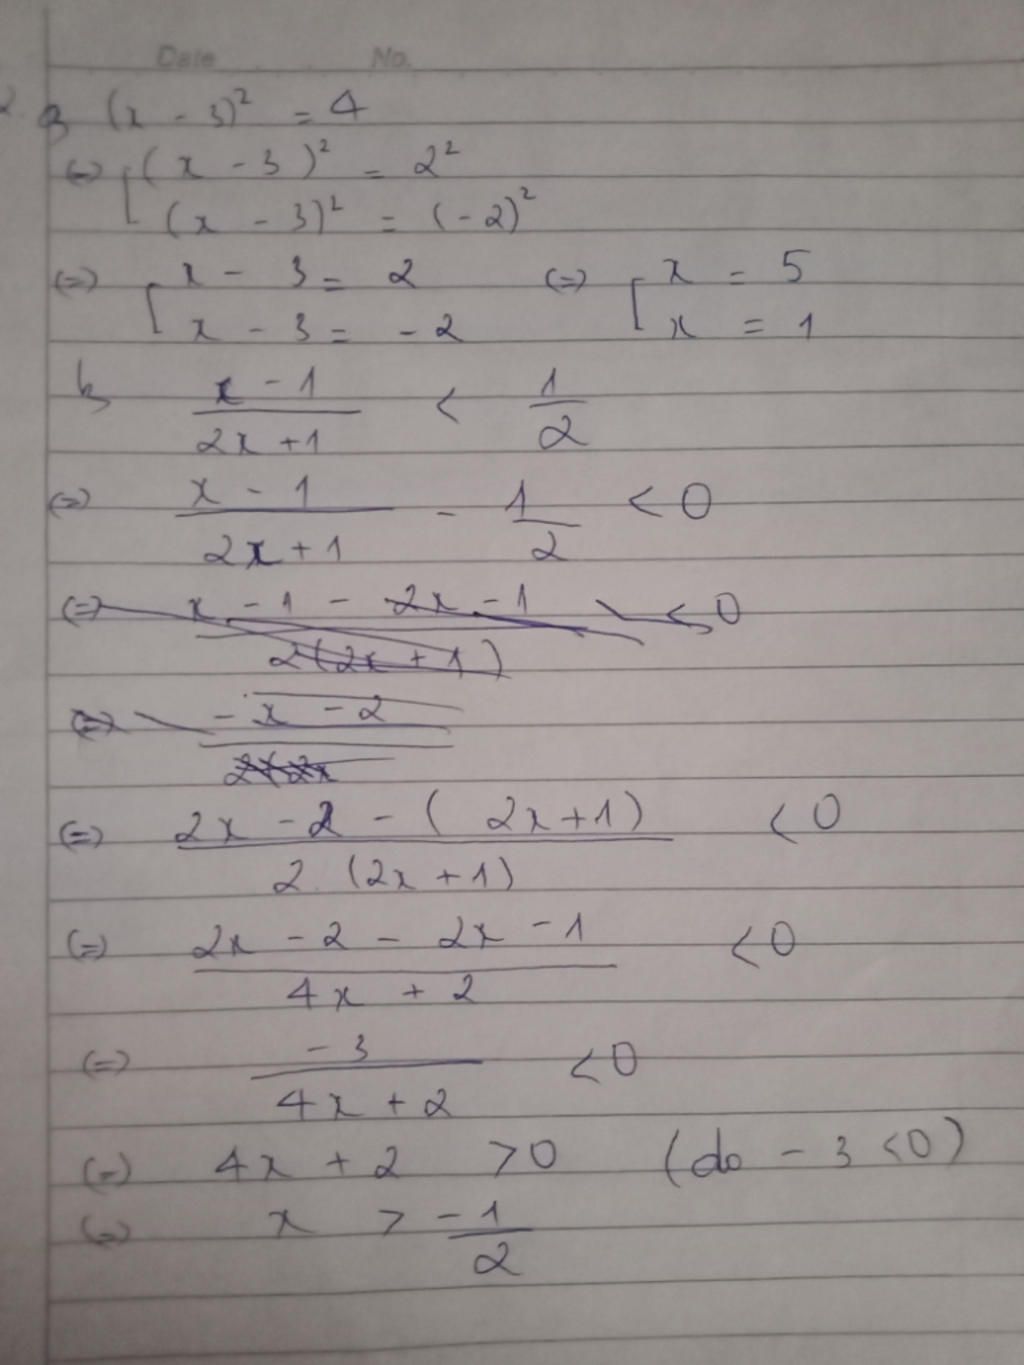 Date No.
2. a, (x - 3)² = 4
(=) [ (x - 3)² = 2²
(x - 3)² = (-2)²
(=) [ x - 3 = 2 (=) [ x = 5
x - 3 = -2 x = 1
b, x - 1 / 2x + 1 < 1 / 2
(=) x - 1 / 2x + 1 - 1 / 2 < 0
(=) x - 1 - 2x - 1 / 2(2x + 1) < 0
(=) -x - 2 / 2(2x
(=) 2x - 2 - ( 2x + 1) / 2. (2x + 1) < 0
(=) 2x - 2 - 2x - 1 / 4x + 2 < 0
(=) -3 / 4x + 2 < 0
(=) 4x + 2 > 0 (do - 3 < 0)
(=) x > -1 / 2